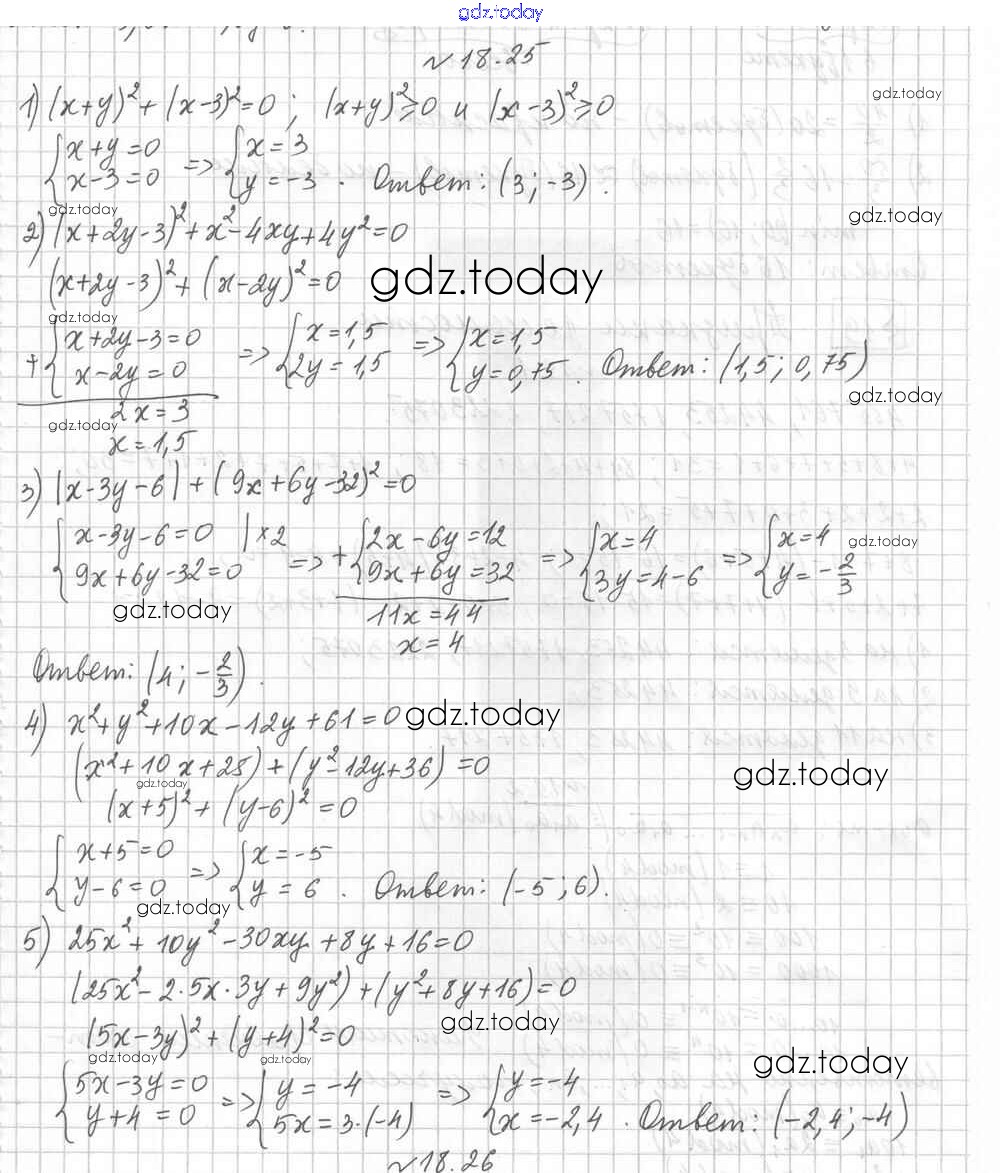 gdz.today
№18.25
1) (x+y)²+(x-3)²=0; (x+y)²≥0 и (x-3)²≥0 gdz.today
{x+y=0 x-3=0 => {x=3 y=-3. Ответ: (3;-3).
gdz.today gdz.today
2) (x+2y-3)²+x²-4xy+4y²=0
(x+2y-3)²+(x-2y)²=0 gdz.today
gdz.today
+{x+2y-3=0 x-2y=0 => {x=1,5 2y=1,5 => {x=1,5 y=0,75. Ответ: (1,5; 0,75)
gdz.today
2x=3
gdz.today
x=1,5
3) |x-3y-6|+(9x+6y-32)²=0
{x-3y-6=0 |×2 9x+6y-32=0 => +{2x-6y=12 9x+6y=32 => {x=4 3y=4-6 => {x=4 y=-2/3
gdz.today
gdz.today 11x=44
x=4
Ответ: (4; -2/3).
4) x²+y²+10x-12y+61=0 gdz.today
(x²+10x+25)+(y²-12y+36)=0
gdz.today gdz.today
(x+5)²+(y-6)²=0
{x+5=0 y-6=0 => {x=-5 y=6. Ответ: (-5;6).
gdz.today
5) 25x²+10y²-30xy+8y+16=0
(25x²-2·5x·3y+9y²)+(y²+8y+16)=0
(5x-3y)²+(y+4)²=0 gdz.today
gdz.today gdz.today gdz.today
{5x-3y=0 y+4=0 => {y=-4 5x=3·(-4) => {y=-4 x=-2,4. Ответ: (-2,4;-4)
№18.26